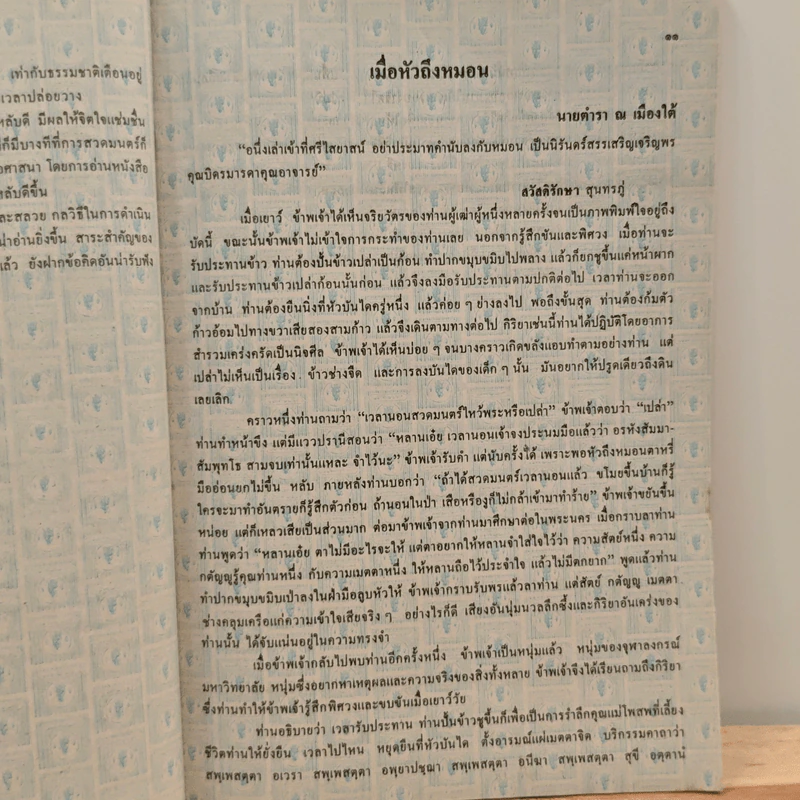 เท่ากับธรรมชาติเตือนอยู่
เวลาปล่อยวาง
หลับดี มีผลให้จิตใจแช่มชื่น
ก็มีบางทีที่การสวดมนตร์ก็
ศาสนา โดยการอ่านหนังสือ
หลับดีขึ้น
ละสลวย กลวิธีในการดำเนิน
น่าอ่านยิ่งขึ้น สาระสำคัญของ
แล้ว ยังฝากข้อคิดอันน่ารับฟัง
๑๑
เมื่อหัวถึงหมอน
นายตำรา ณ เมืองใต้
“อนึ่งเล่าเข้าที่ศรีไสยาสน์ อย่าประมาทคำนับลงกับหมอน เป็นนิรันดร์สรรเสริญเจริญพร
คุณบิดรมารดาคุณอาจารย์”
สวัสดิรักษา สุนทรภู่
เมื่อเยาว์ ข้าพเจ้าได้เห็นจริยวัตรของท่านผู้เฒ่าผู้หนึ่งหลายครั้งจนเป็นภาพพิมพ์ใจอยู่ถึง
บัดนี้ ขณะนั้นข้าพเจ้าไม่เข้าใจการกระทำของท่านเลย นอกจากรู้สึกขันและพิศวง เมื่อท่านจะ
รับประทานข้าว ท่านต้องปั้นข้าวเปล่าเป็นก้อน ทำปากขมุบขมิบไปพลาง แล้วก็ยกชูขึ้นแค่หน้าผาก
และรับประทานข้าวเปล่าก้อนนั้นก่อน แล้วจึงลงมือรับประทานตามปกติต่อไป เวลาท่านจะออก
จากบ้าน ท่านต้องยืนนิ่งที่หัวบันไดครู่หนึ่ง แล้วค่อย ๆ ย่างลงไป พอถึงขั้นสุด ท่านต้องก้มตัว
ก้าวอ้อมไปทางขวาเสียสองสามก้าว แล้วจึงเดินตามทางต่อไป กิริยาเช่นนี้ท่านได้ปฏิบัติโดยอาการ
สำรวมเคร่งครัดเป็นนิจศีล ข้าพเจ้าได้เห็นบ่อย ๆ จนบางคราวเกิดขลังแอบทำตามอย่างท่าน แต่
เปล่าไม่เห็นเป็นเรื่อง ข้าวช่างจืด และการลงบันไดของเด็ก ๆ นั้น มันอยากให้ปรูดเดียวถึงดิน
เลยเลิก
คราวหนึ่งท่านถามว่า “เวลานอนสวดมนตร์ไหว้พระหรือเปล่า” ข้าพเจ้าตอบว่า “เปล่า”
ท่านทำหน้าขึง แต่มีแววปรานีสอนว่า “หลานเอ๋ย เวลานอนเจ้าจงประนมมือแล้วว่า อรหังสัมมา-
สัมพุทโธ สามจบเท่านั้นแหละ จำไว้นะ” ข้าพเจ้ารับคำ แต่นับครั้งได้ เพราะพอหัวถึงหมอนตาหรี่
มืออ่อนยกไม่ขึ้น หลับ ภายหลังท่านบอกว่า “ถ้าได้สวดมนตร์เวลานอนแล้ว ขโมยขึ้นบ้านก็รู้
ใครจะมาทำอันตรายก็รู้สึกตัวก่อน ถ้านอนในป่า เสือหรืองูก็ไม่กล้าเข้ามาทำร้าย” ข้าพเจ้าขยันขึ้น
หน่อย แต่ก็เหลวเสียเป็นส่วนมาก ต่อมาข้าพเจ้าจากท่านมาศึกษาต่อในพระนคร เมื่อกราบลาท่าน
ท่านพูดว่า “หลานเอ๋ย ตาไม่มีอะไรจะให้ แต่ตาอยากให้หลานจำใส่ใจไว้ว่า ความสัตย์หนึ่ง ความ
กตัญญูรู้คุณท่านหนึ่ง กับความเมตตาหนึ่ง ให้หลานถือไว้ประจำใจ แล้วไม่มีตกยาก” พูดแล้วท่าน
ทำปากขมุบขมิบเป่าลงในฝ่ามือลูบหัวให้ ข้าพเจ้ากราบรับพรแล้วลาท่าน แต่สัตย์ กตัญญู เมตตา
ช่างคลุมเครือแก่ความเข้าใจเสียจริง ๆ อย่างไรก็ดี เสียงอันนุ่มนวลลึกซึ้งและกิริยาอันเคร่งของ
ท่านนั้น ได้จับแน่นอยู่ในความทรงจำ
เมื่อข้าพเจ้ากลับไปพบท่านอีกครั้งหนึ่ง ข้าพเจ้าเป็นหนุ่มแล้ว หนุ่มของจุฬาลงกรณ์
มหาวิทยาลัย หนุ่มซึ่งอยากหาเหตุผลและความจริงของสิ่งทั้งหลาย ข้าพเจ้าจึงได้เรียนถามถึงกิริยา
ซึ่งท่านทำให้ข้าพเจ้ารู้สึกพิศวงและขบขันเมื่อเยาว์วัย
ท่านอธิบายว่า เวลารับประทาน ท่านปั้นข้าวชูขึ้นก็เพื่อเป็นการรำลึกคุณแม่โพสพที่เลี้ยง
ชีวิตท่านให้ยั่งยืน เวลาไปไหน หยุดยืนที่หัวบันได ตั้งอารมณ์แผ่เมตตาจิต บริกรรมคาถาว่า
สพฺเพสตฺตา อเวรา สพฺเพสตฺตา อพฺยาปชฺฌา สพฺเพสตฺตา อนีฆา สพฺเพสตฺตา สุขี อตฺตานํ